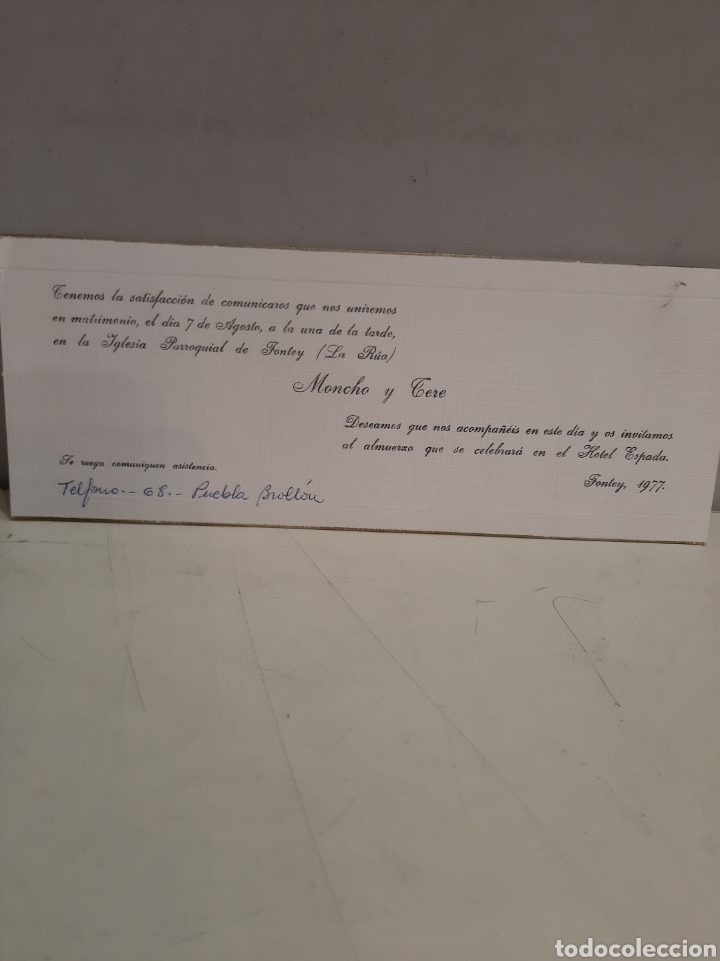 Tenemos la satisfacción de comunicaros que nos uniremos
en matrimonio, el dia 7 de Agosto, a la una de la tarde,
en la Iglesia Parroquial de Fontey (La Rúa)
Moncho y Tere
Deseamos que nos acompañéis en este día y os invitamos
al almuerzo que se celebrará en el Hotel Espada.
Fontey, 1977.
Se ruega comuniquen asistencia.
Telfono.- 68.- Puebla Brollón
todocoleccion